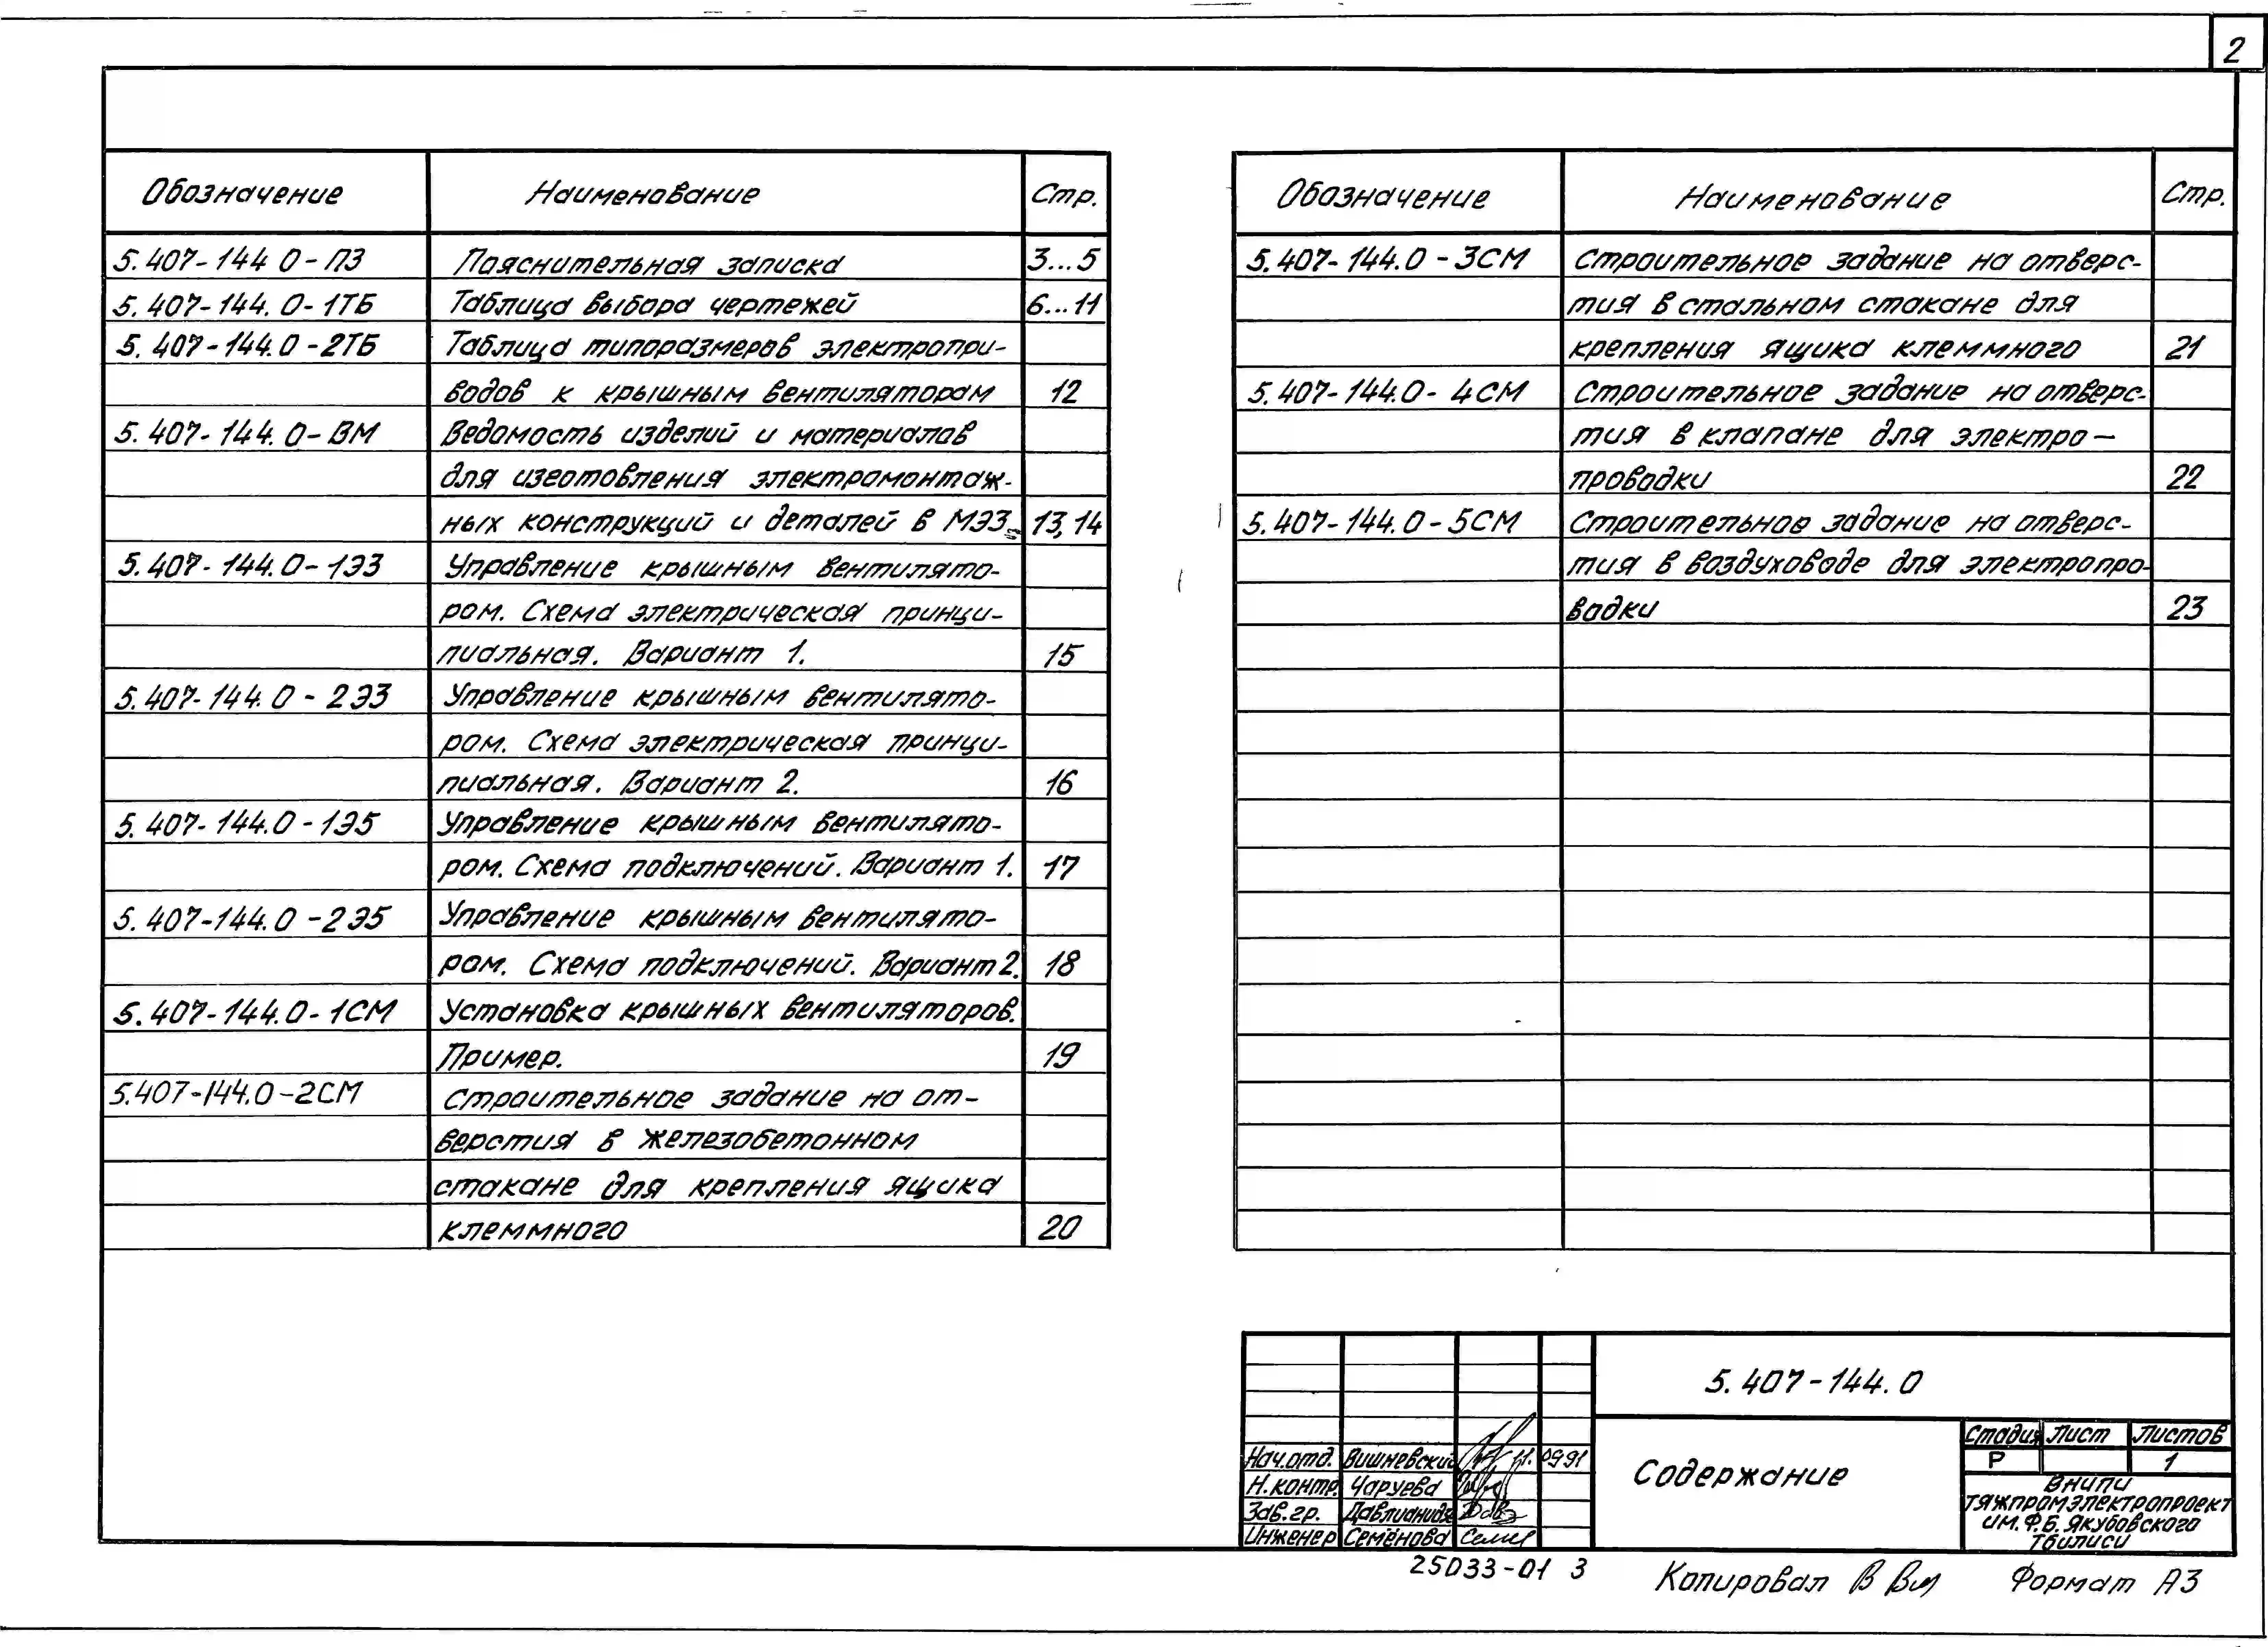 2
Обозначение Наименование Стр.
5.407-144 0-ПЗ Пояснительная записка 3...5
5.407-144.0-1ТБ Таблица выбора чертежей 6...11
5.407-144.0-2ТБ Таблица типоразмеров электропри-
водов к крышным вентиляторам 12
5.407-144.0-ВМ Ведомость изделий и материалов
для изготовления электромонтаж-
ных конструкций и деталей в МЭЗ. 13,14
5.407-144.0-1ЭЗ Управление крышным вентилято-
ром. Схема электрическая принци-
пиальная. Вариант 1. 15
5.407-144.0-2ЭЗ Управление крышным вентилято-
ром. Схема электрическая принци-
пиальная. Вариант 2. 16
5.407-144.0-1Э5 Управление крышным вентилято-
ром. Схема подключений. Вариант 1. 17
5.407-144.0-2Э5 Управление крышным вентилято-
ром. Схема подключений. Вариант 2. 18
5.407-144.0-1СМ Установка крышных вентиляторов.
Пример. 19
5.407-144.0-2СМ Строительное задание на от-
верстия в железобетонном
стакане для крепления ящика
клеммного 20
Обозначение Наименование Стр.
5.407-144.0-3СМ Строительное задание на отверс-
тия в стальном стакане для
крепления ящика клеммного 21
5.407-144.0-4СМ Строительное задание на отверс-
тия в клапане для электро-
проводки 22
5.407-144.0-5СМ Строительное задание на отверс-
тия в воздуховоде для электропро-
водки 23
5.407-144.0
Содержание
Стадия Лист Листов
Р 1
ВНИПИ
Тяжпромэлектропроект
им. Ф.Б. Якубовского
Тбилиси
Нач.отд. Вишневский 09 91
Н.контр. Чаруева
Зав.гр. Давлианидзе
Инженер Семёнова
25033-01 3
Копировал Формат А3